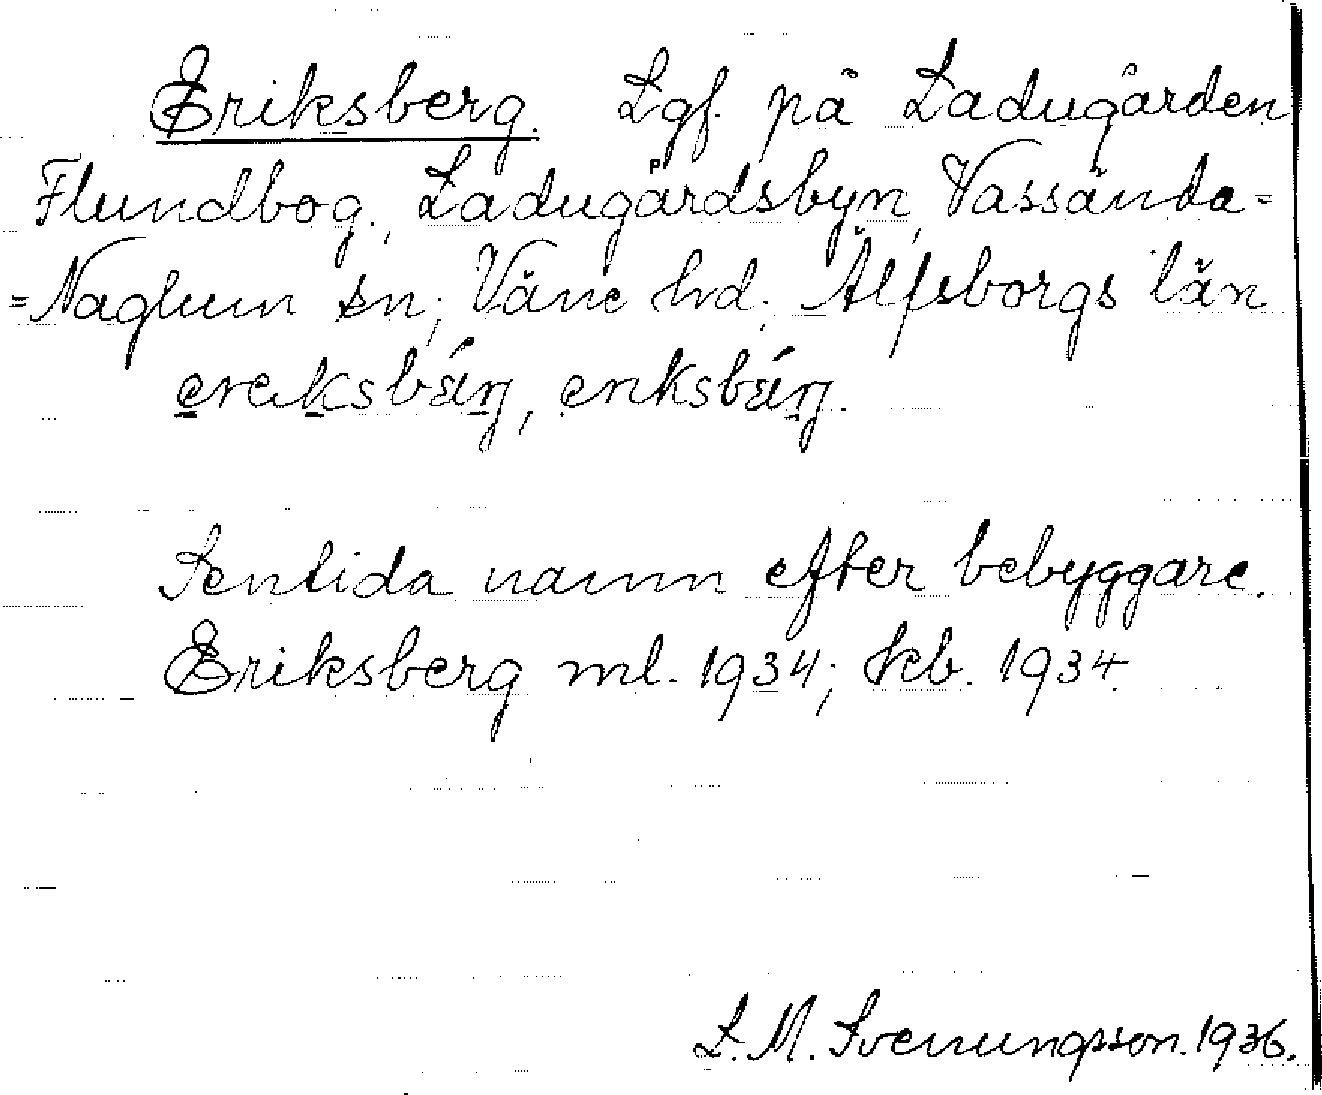 Eriksberg. Lgf. på Ladugården
Flundbog., Ladugårdsbyn, Vassända=
=Naglum sn; Väne hd; Älfsborgs län
Sentida namn efter bebyggare.
Eriksberg ml. 1934; kb. 1934.
L. M. Svenungsson. 1936.